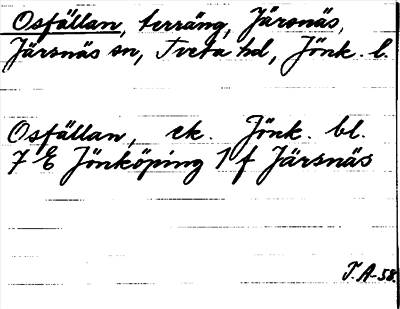 Osfällan, terräng, Järsnäs,
Järsnäs sn, Tveta hd, Jönk. l.
Osfällan, ek. Jönk. bl.
7 E Jönköping 1 f Järsnäs
T.A-58.